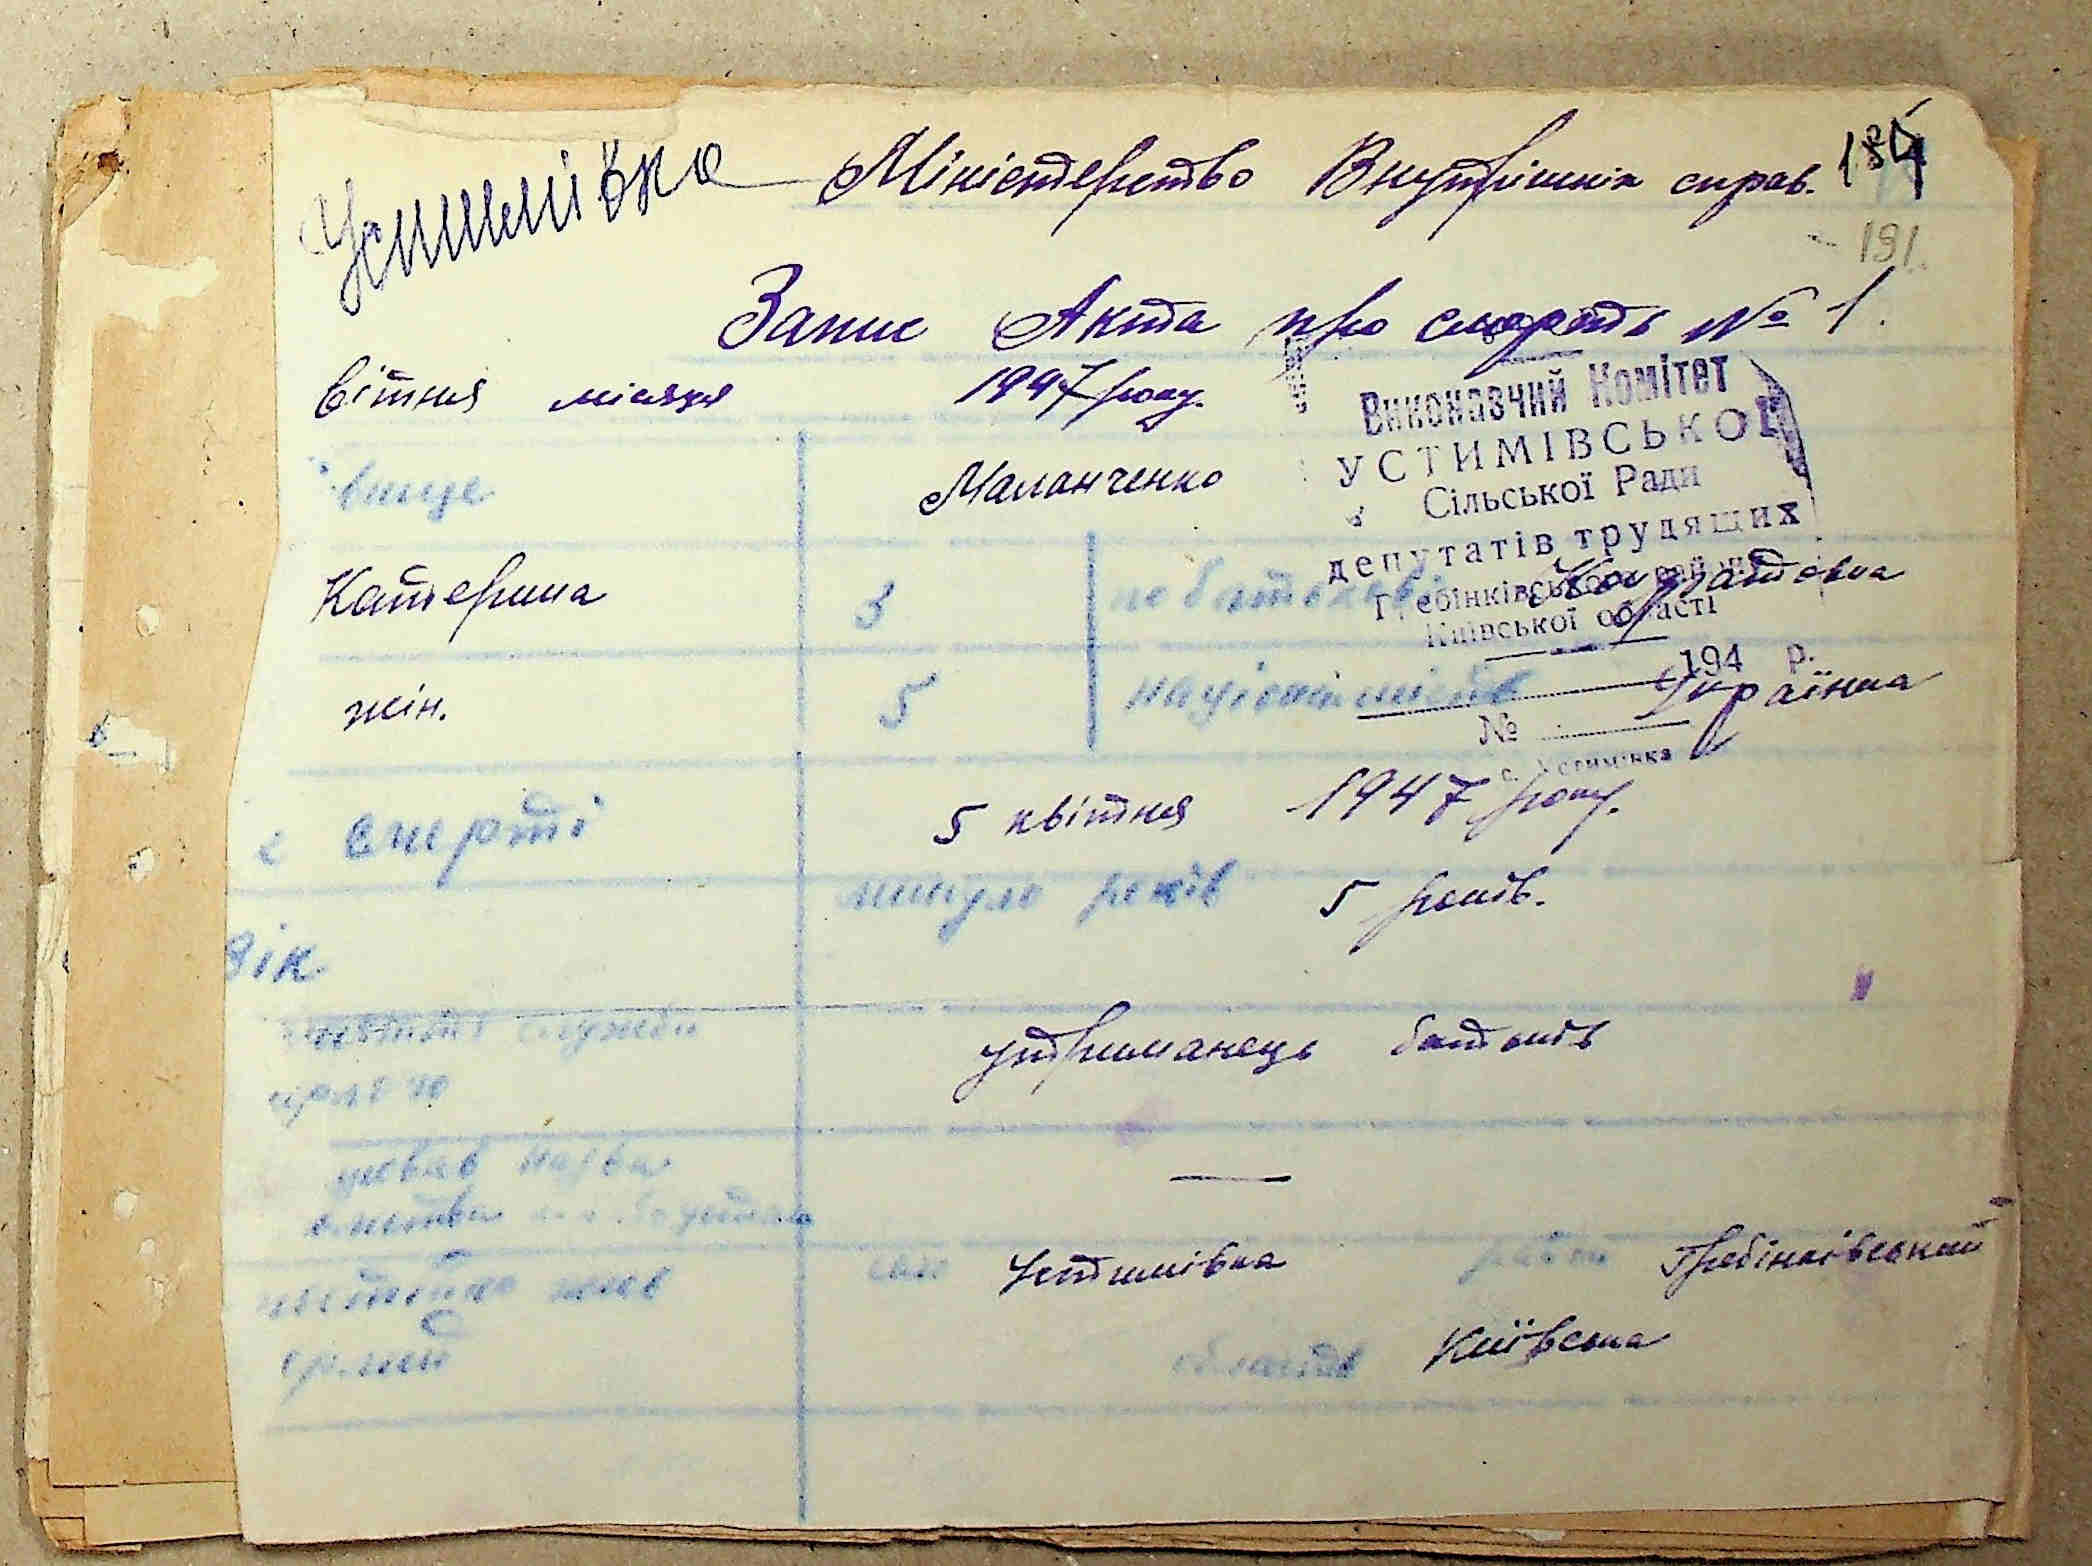 Устимівка
Міністерство Внутрішніх справ.
184
191
Запис Акта про смерть № 1.
вітня місяця 1947 року.
Виконавчий Комітет
УСТИМІВСЬКОЇ
Сільської Ради
депутатів трудящих
Гребінківського району
Київської області
194 р.
№
с. Устимівка
вище Маланченко
Катерина 3 по батькові Кондратовна
жін. 5 національність Українка
смерті 5 квітня 1947 року.
вік минуло років 5 років.
служби утриманець батьків
назва —
село Устимівка район Гребінківський
постійно жив
область Київська